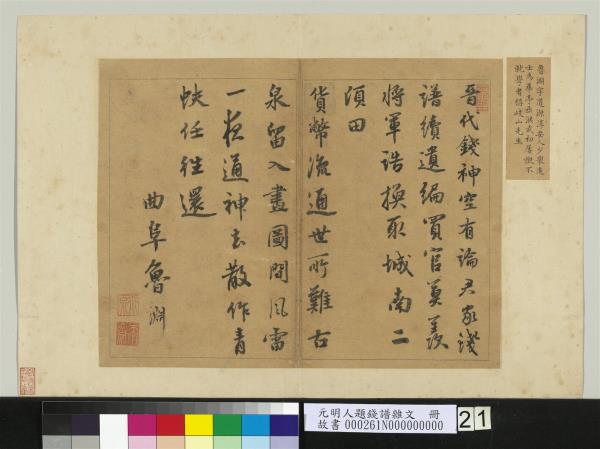 魯淵字道源淳安人少舉進
士為華亭丞洪武初屢徵不
就學者稱岐山先生
晉代錢神空有論君家錢
譜續遺編買官莫羨
將軍誥換取城南二
頃田
貨幣流通世所難古
泉留入畫圖間風雷
一夜通神去散作青
蚨任往還
曲阜魯淵
元明人題錢譜雜文 冊
故書 000261N000000000
21